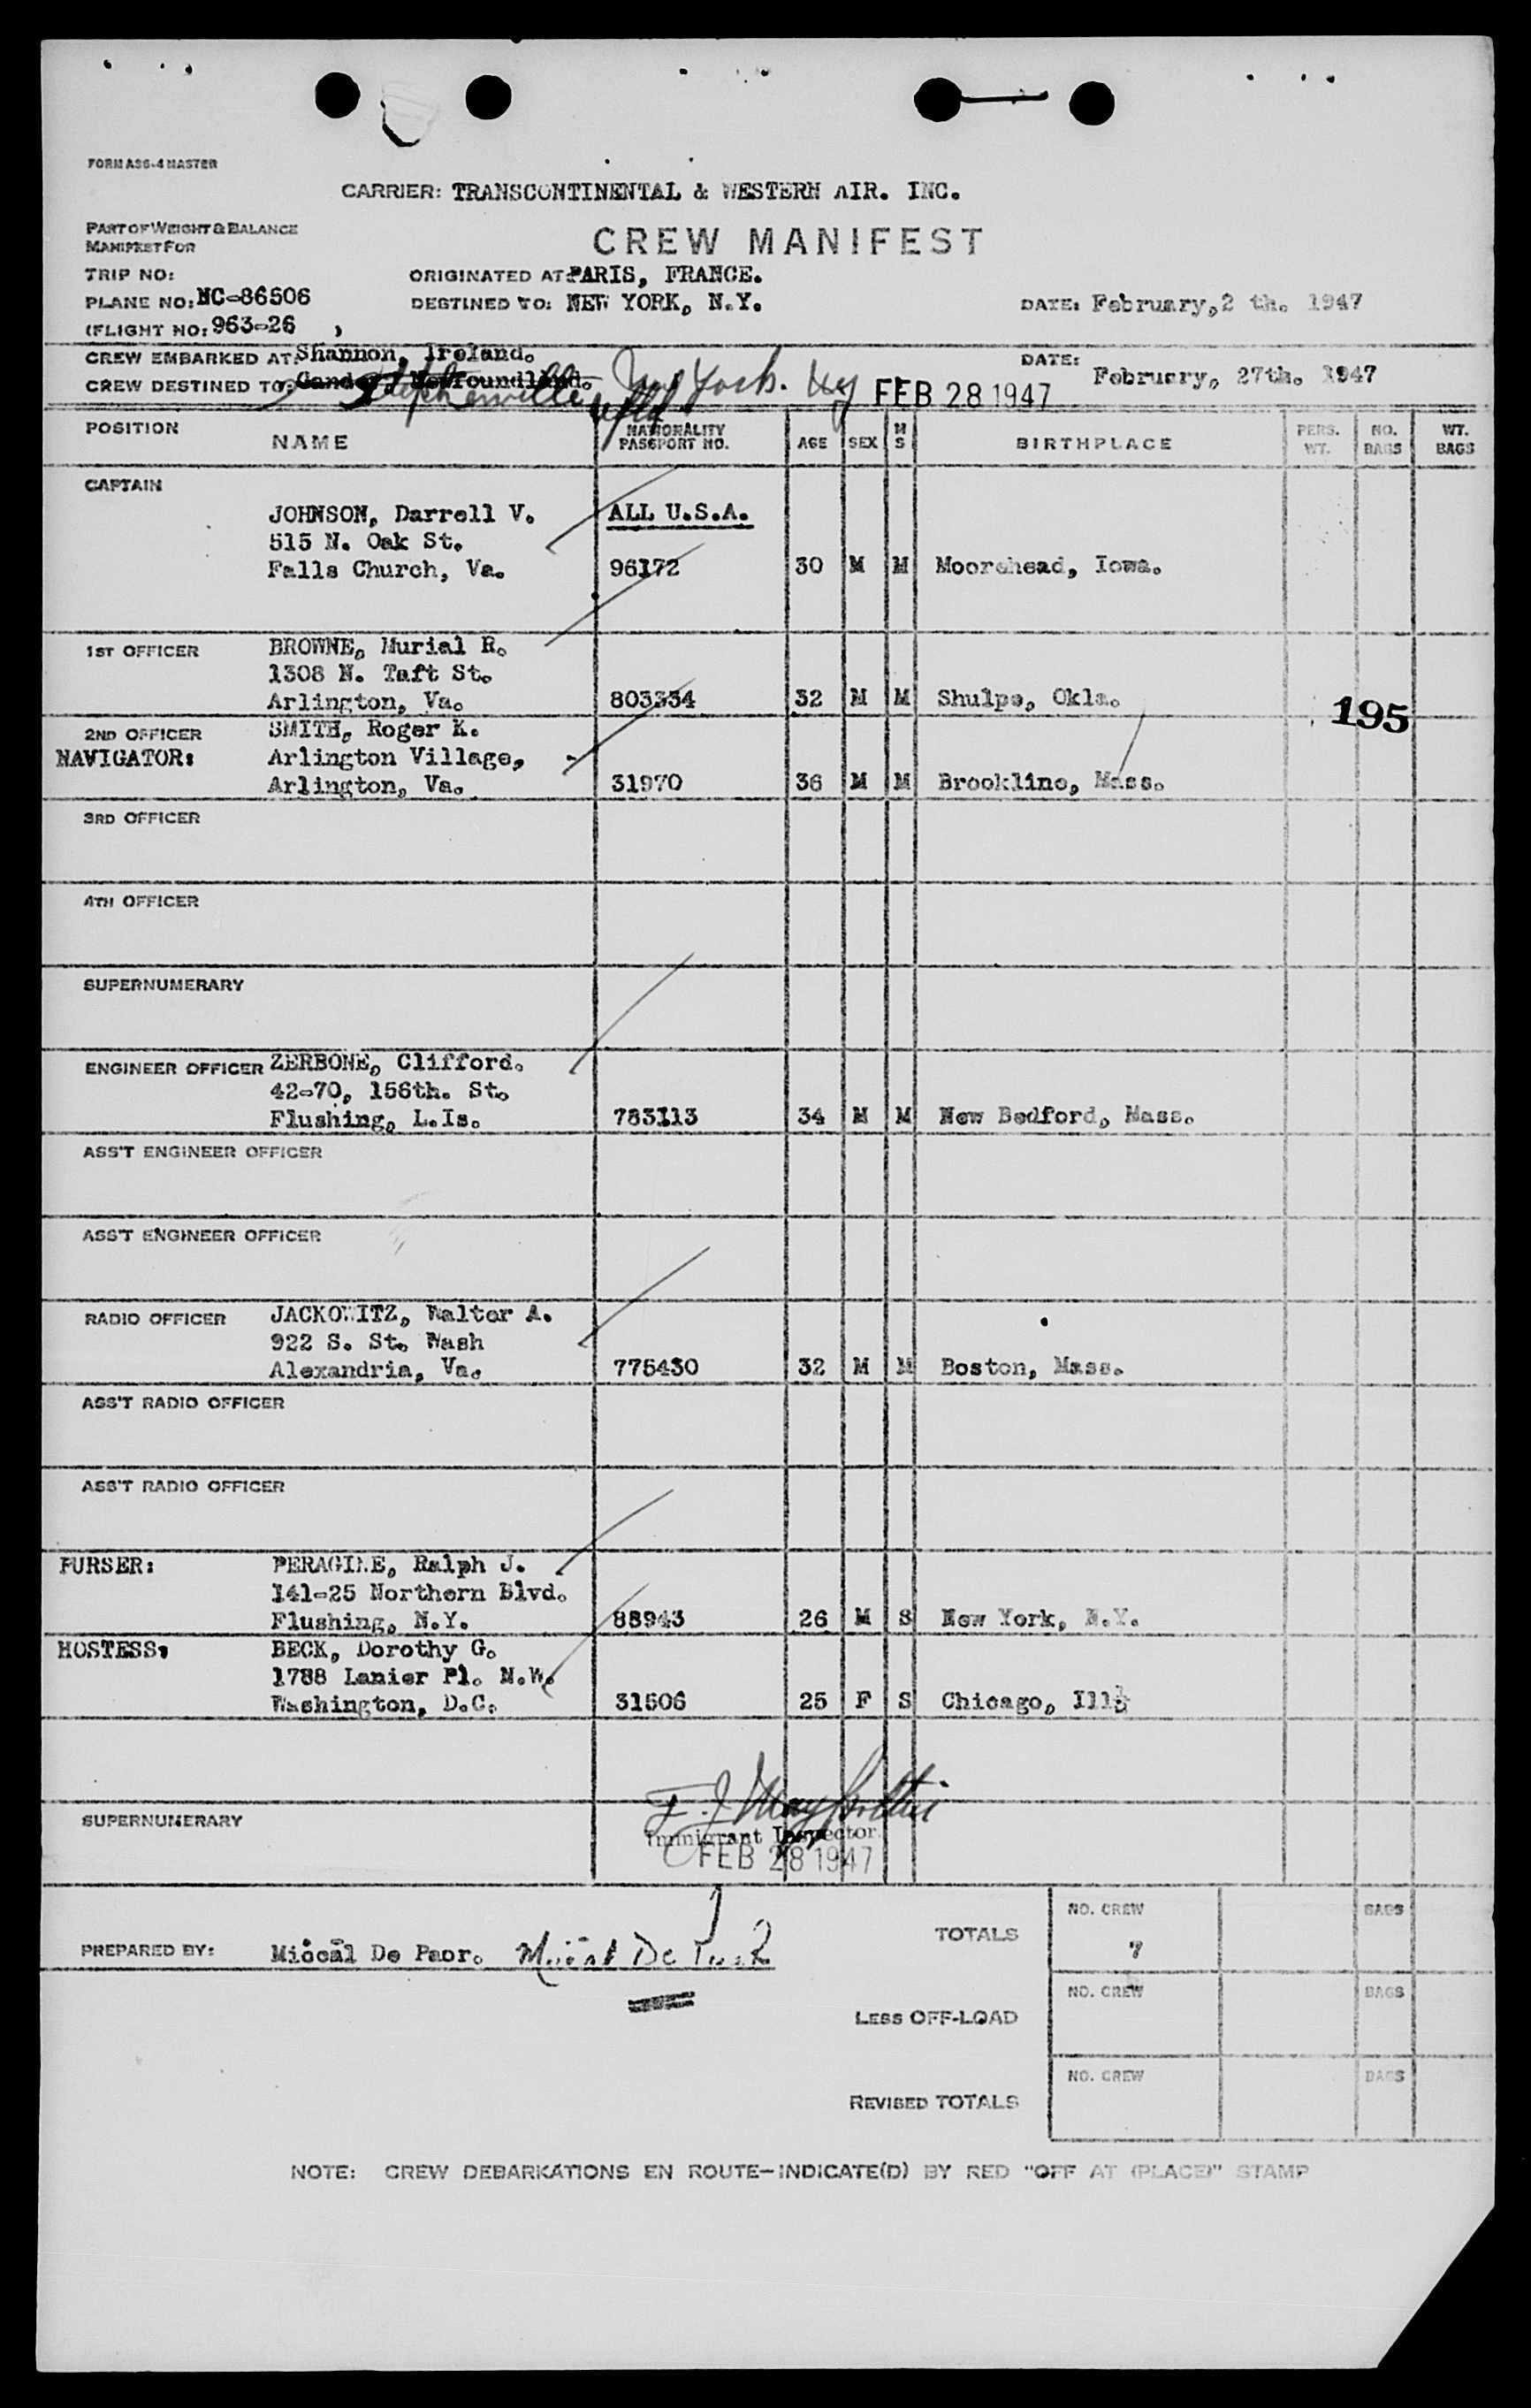 FORM ASG-4 MASTER
CARRIER: TRANSCONTINENTAL & WESTERN AIR. INC.
PART OF WEIGHT & BALANCE
MANIFEST FOR
CREW MANIFEST
TRIP NO:
ORIGINATED AT: PARIS, FRANCE.
PLANE NO: NC-86506
DESTINED TO: NEW YORK, N.Y.
DATE: February,2 th. 1947
(FLIGHT NO: 963-26 )
CREW EMBARKED AT: Shannon, Ireland.
DATE: February, 27th. 1947
CREW DESTINED TO: Gander, Newfoundland. Stephenville Nfld New York. NY FEB 28 1947
POSITION NAME NATIONALITY PASSPORT NO. AGE SEX M S BIRTHPLACE PERS. WT. NO. BAGS WT. BAGS
CAPTAIN
JOHNSON, Darrell V. ALL U.S.A.
515 N. Oak St.
Falls Church, Va. 96172 30 M M Moorehead, Iowa.
1ST OFFICER BROWNE, Murial R.
1308 N. Taft St.
Arlington, Va. 803334 32 M M Shulpe, Okla.
195
2ND OFFICER SMITH, Roger K.
NAVIGATOR: Arlington Village,
Arlington, Va. 31970 36 M M Brookline, Mass.
3RD OFFICER
4TH OFFICER
SUPERNUMERARY
ENGINEER OFFICER ZERBONE, Clifford.
42-70, 156th. St.
Flushing, L.Is. 783113 34 M M New Bedford, Mass.
ASS'T ENGINEER OFFICER
ASS'T ENGINEER OFFICER
RADIO OFFICER JACKOWITZ, Walter A.
922 S. St. Wash
Alexandria, Va. 775430 32 M M Boston, Mass.
ASS'T RADIO OFFICER
ASS'T RADIO OFFICER
PURSER: PERAGINE, Ralph J.
141-25 Northern Blvd.
Flushing, N.Y. 88943 26 M S New York, N.Y.
HOSTESS: BECK, Dorothy G.
1788 Lanier Pl. N.W.
Washington, D.C. 31506 25 F S Chicago, Ill.
SUPERNUMERARY
Immigrant Inspector
FEB 28 1947
PREPARED BY: Miceál De Paor.
TOTALS
NO. CREW
7
BAGS
LESS OFF-LOAD
NO. CREW
BAGS
REVISED TOTALS
NO. CREW
BAGS
NOTE: CREW DEBARKATIONS EN ROUTE-INDICATE(D) BY RED "OFF AT (PLACE)" STAMP